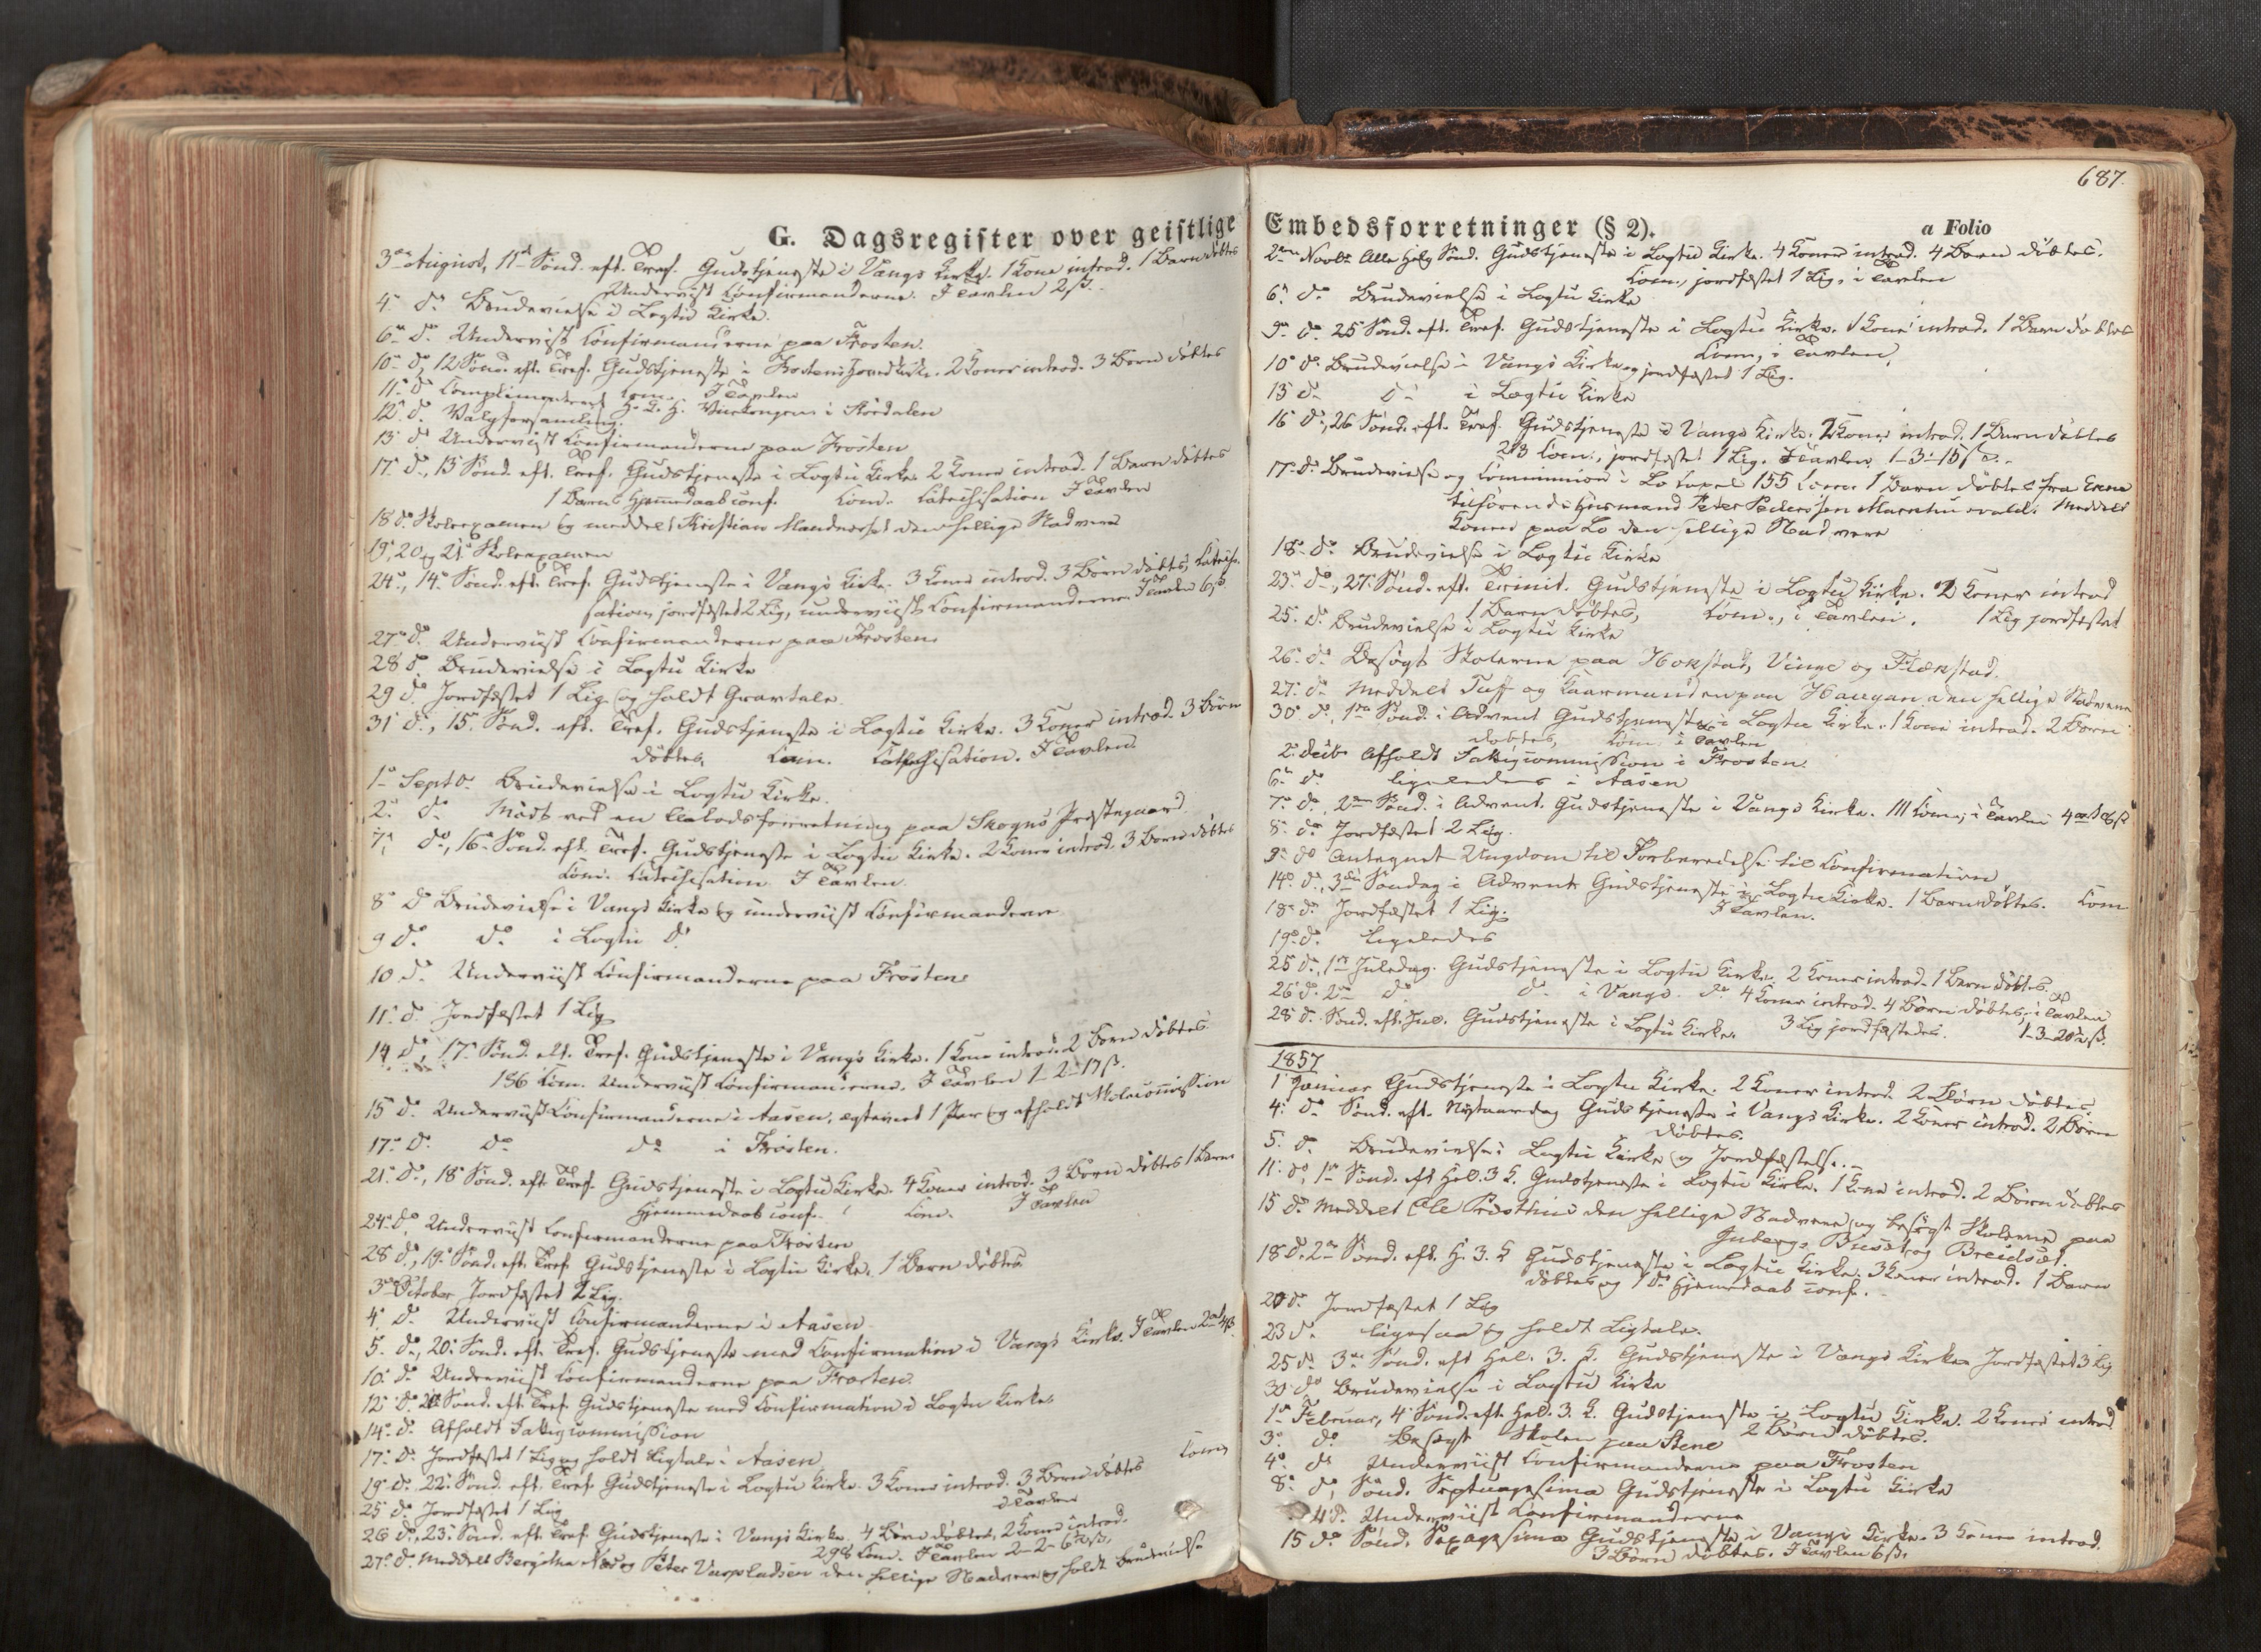 G. Dagsregister over geistlige
3die August, 11te Sönd. eft. Tref. Gudstjeneste i Vangs Kirke. 1 Kone introd. 1 Barn döbtes
Underviist Confirmanderne. I Tavlen 2 ß.
4. do Brudevielse i Logtu Kirke.
6te do Underviist Confirmanderne paa Frosten.
10. do, 12 Sönd. eft. Tref. Gudstjeneste i Kirke. 2 Koner introd. 3 Børn döbtes
Com. I Tavlen
11. do Complimenteret H. K. H. Vicekongen i Stördalen
12. do. Valgforsamling.
13 do Underviist Confirmanderne paa Frosten
17. do, 13 Sönd. eft. Tref. Gudstjeneste i Logtu Kirke 2 Koner introd. 1 Barn döbtes
1 Barns Hjemmedaab conf. Com. Catechisation I Tavlen
18 do. Skoleexamen og meddelt Kristian den hellige Nadvere
19, 20 og 21. Skoleexamen
24., 14. Sönd. eft. Tref. Gudstjeneste i Vangs Kirke. 3 Koner introd. 3 Börn döbtes, Catechi-
sation, jordfæstet 2 Lig, underviist Confirmanderne. I Tavlen 6 ß.
27. do. Underviist Confirmanderne paa Frosten
28 do. Brudevielse i Logtu Kirke
29 do Jordfæstet 1 Lig og holdt Gravtale.
31 do., 15. Sönd. eft. Tref. Gudstjeneste i Logtu Kirke. 3 Koner introd. 3 Börn
döbtes, Com. Catechisation. I Tavlen
1. Septbr. Brudevielse i Logtu Kirke.
2. do Mödt ved en Aabodsforretning paa Skogns Præstegaard.
7. do, 16. Sönd. eft. Tref. Gudstjeneste i Logtu Kirke. 2 Koner introd. 3 Børn döbtes
Com. Catechisation. I Tavlen.
8. do Brudevielse i Vangs Kirke og underviist Confirmanderne
9 do. do i Logtu do
10 do. Underviist Confirmanderne paa Frosten
11. do Jordfæstet 1 Lig
14 do, 17. Sönd. eft. Tref. Gudstjeneste i Vangs Kirke. 1 Kone introd. 2 Børn döbtes
186 Com. Underviist Confirmanderne. I Tavlen 1-2-17 ß.
15 do. Underviist Confirmanderne i Aasen, ægteviet 1 Par og afholdt Skolecommission
17. do. do do i Frosten.
21. do, 18 Sönd. eft. Tref. Gudstjeneste i Logtu Kirke. 4 Koner introd. 3 Børn döbtes 1 Barns
Hjemmedaab conf. Com. I Tavlen
24. do Underviist Confirmanderne paa Frosten
28 do, 19. Sönd. eft. Tref. Gudstjeneste i Logtu Kirke. 1 Barn döbtes
3die October Jordfæstet 2 Lig.
4. do. Underviist Confirmanderne i Aasen
5. do, 20. Sönd. eft. Tref. Gudstjeneste med Confirmation i Vangs Kirke. I Tavlen
10. do. Underviist Confirmanderne paa Frosten.
12. do. 21 Sönd. eft. Tref. Gudstjeneste med Confirmation i Logtu Kirke
14. do. Afholdt Fattigcommission
17. do. Jordfæstet 1 Lig og holdt Ligtale i Aasen
19. do. 22. Sönd. eft. Tref. Gudstjeneste i Logtu Kirke. 3 Koner introd. 3 Børn döbtes Com.
I Tavlen
25 do. Jordfæstet 1 Lig
26 do, 23. Sönd. eft. Tref. Gudstjeneste i Vangs Kirke. 4 Börn döbtes, 2 Koner introd.
298 Com. I Tavlen
27. do. Meddelt og Peter den hellige Nadvere og holdt Brudevielse
687.
Embedsforretninger (§ 2). a Folio
2den Novbr. Alle Helg. Sönd. Gudstjeneste i Logtu Kirke. 4 Koner introd. 4 Børn döbtes.
Com., jordfæstet 1 Lig, i Tavlen
6. do Brudevielse i Logtu Kirke
9. do. 25 Sönd. eft. Tref. Gudstjeneste i Logtu Kirke. 1 Kone introd. 1 Barn döbtes
Com, i Tavlen,
10. do. Brudevielse i Vangs Kirke og jordfæstet 1 Lig.
13 do do i Logtu Kirke
16 do, 26 Sönd. eft. Tref. Gudstjeneste i Vangs Kirke. 2 Koner introd. 1 Barn döbtes
213 Com., jordfæstet 1 Lig. I Tavlen 1-3-15 ß.
17. do. Brudevielse og Communion i Lo Capel 155 Com. 1 Barn döbtes fra
tilhörende Huusmand Peter Pederssen Meddelt
Konen paa Lo den hellige Nadvere
18. do. Brudevielse i Logtu Kirke
23. do, 27. Sönd. eft. Trinit. Gudstjeneste i Logtu Kirke. 2 Koner introd
1 Barn döbtes, Com., i Tavlen. 1 Lig jordfæstet
25. do. Brudevielse i Logtu Kirke
26. do. Besögt Skolerne paa Hokstad, Vinge og Flekstad.
27. do Meddelt og Kaarmanden paa Haugan den hellige Nadvere
30. do, 1ste Sönd. i Advent Gudstjeneste i Logtu Kirke. 1 Kone introd. 2 Børn
döbtes, Com. i Tavlen
2. Decbr. Afholdt Fattigcommission i Frosten.
6. do. ligeledes i Aasen
7. do. 2den Sönd. i Advent. Gudstjeneste i Vangs Kirke. 111 Com., i Tavlen
8. do Jordfæstet 2 Lig.
9. do Antegnet Ungdom til Forberedelse til Confirmation
14. do, 3die Søndag i Advent Gudstjeneste i Logtu Kirke. 1 Barn döbtes. Com
I Tavlen.
18. do. Jordfæstet 1 Lig.
19. do. Ligeledes
25 do, 1ste Juledag. Gudstjeneste i Logtu Kirke. 2 Koner introd. 1 Barn döbtes.
26 do. 2den do do i Vangs do 4 Koner introd. 4 Börn döbtes, i Tavlen
1-3-20 ß.
28 do. Sönd. eft. Jul. Gudstjeneste i Logtu Kirke. 3 Lig jordfæstedes.
1857
1 Januar Gudstjeneste i Logtu Kirke. 2 Koner introd. 2 Börn döbtes.
4. do Sönd. eft. Nytaarsdag Gudstjeneste i Vangs Kirke. 2 Koner introd. 2 Børn
döbtes.
5. do. Brudevielse i Logtu Kirke og Jordfæstelse.
11. do, 1ste Sönd. eft Hel. 3 K. Gudstjeneste i Logtu Kirke. 1 Kone introd. 2 Börn döbtes
15 do. Meddelt Ole den hellige Nadvere, og besögt Skolerne paa
og Breidset.
18 do. 2den Sönd. eft. H. 3. K Gudstjeneste i Logtu Kirke. 3 Koner introd. 1 Barn
döbtes og 1 do Hjemmedaab conf.
20 do. Jordfæstet 1 Lig
23 do ligesaa og holdt Ligtale.
25 do 3die Sönd. eft Hel. 3. K. Gudstjeneste i Vangs Kirke. Jordfæstet 3 Lig
30 do Brudevielse i Logtu Kirke
1ste Februar, 4 Sönd. eft. Hel. 3. K. Gudstjeneste i Logtu Kirke. 2 Koner introd
2 Børn döbtes.
3. do Besögt Skolen paa Stene
4. do Underviist Confirmanderne paa Frosten
8. do, Sönd. Septuagesima Gudstjeneste i Logtu Kirke
do. Underviist Confirmanderne
15 do Sönd. Sexagesima Gudstjeneste i Vangs Kirke. 3 Koner introd.
3 Börn döbtes. I Tavlen 6 ß.